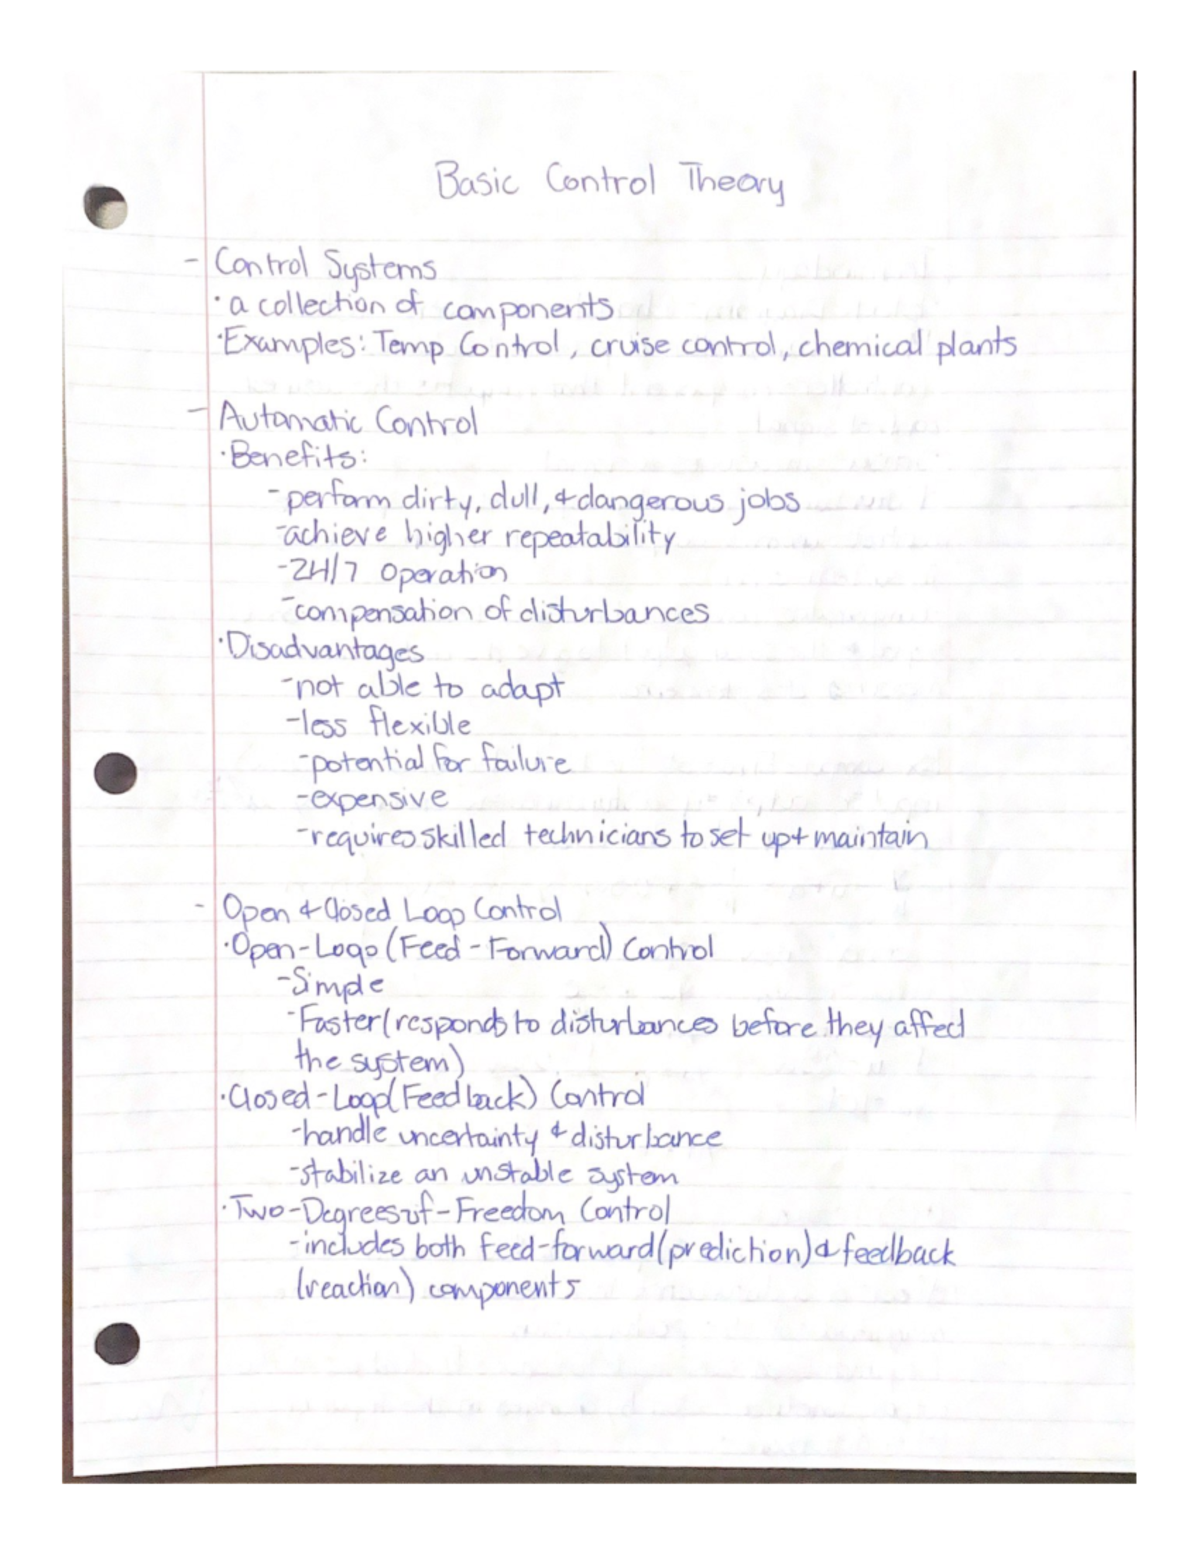 Basic Control Theory
- Control Systems
· a collection of components
· Examples: Temp Control, cruise control, chemical plants
- Automatic Control
· Benefits:
- perform dirty, dull, & dangerous jobs
- achieve higher repeatability
- 24/7 Operation
- compensation of disturbances
· Disadvantages
- not able to adapt
- less flexible
- potential for failure
- expensive
- requires skilled technicians to set up & maintain
- Open & Closed Loop Control
· Open-Loop (Feed-Forward) Control
- Simple
- Faster (responds to disturbances before they affect
the system)
· Closed-Loop (Feedback) Control
- handle uncertainty & disturbance
- stabilize an unstable system
· Two-Degrees of-Freedom Control
- includes both feed-forward (prediction) & feedback
(reaction) components